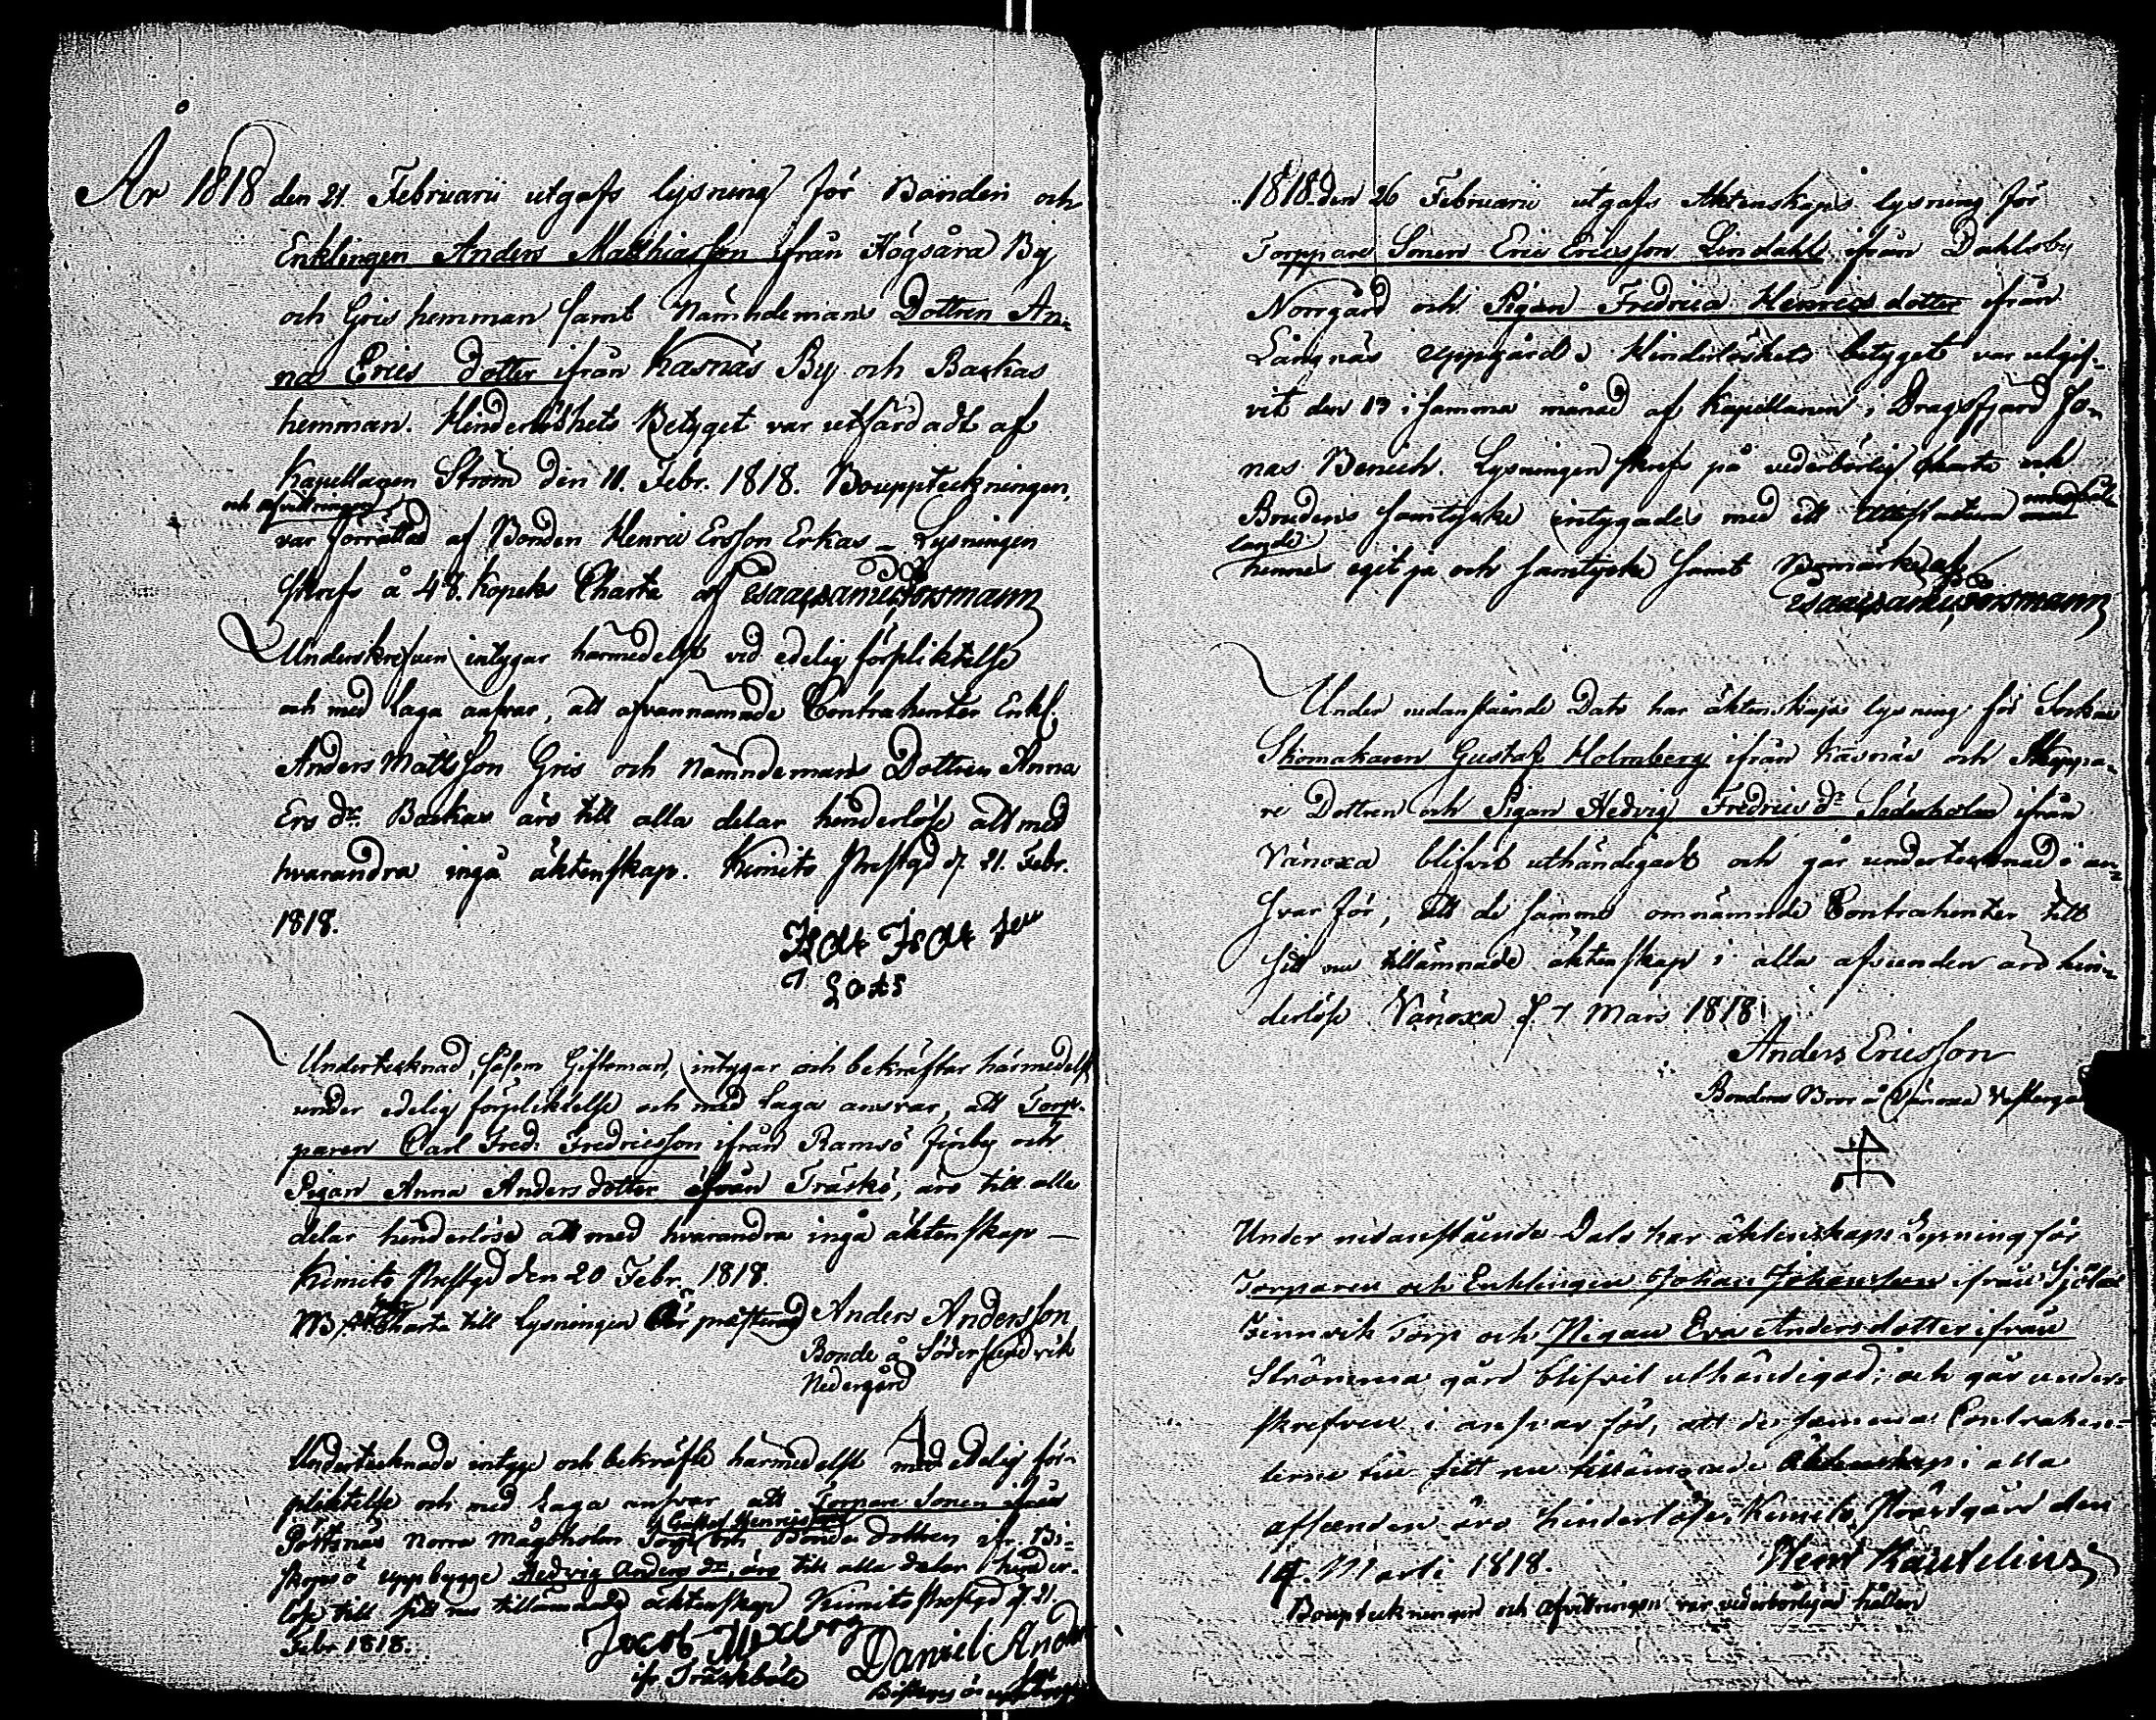 År 1818 den 21. Februarii utgafs lysning för Bonden och
Enklingen Anders Matthiasson ifrån Högsåra By
och Gris hemman samt Nämndemans Dottren An-
na Erics dotter ifrån Kasnäs By och Backas
hemman. Hinderlöshets Betyget var utfärdadt af
Kapellanen Ström den 11. Febr. 1818. Bouppteckningen,
och afvittringen
var förrättad af Bonden Henric Ersson Erkas – Lysningen
skrefs å 48. Kopeks Charta af Esaias Forsmann
Underskrefven intygar härmedelst vid edelig förpliktelse
och med laga ansvar, att ofvannämnde Contrahenter Enkl.
Anders Mattsson Gris och Nämndemans Dottren Anna
Ers dr. Backas äro till alla delar hinderlöse att med
hvarandra ingå äktenskap. Kimito Prestgd d. 21. Febr.
1818.
Undertecknad, såsom Giftoman, intygar och bekräftar härmedelst
under edelig förpliktelse och med laga ansvar, att Torp-
paren Carl Fred. Fredricsson ifrån Ramsö Finby och
Pigan Anna Andersdotter ifrån Träskö, äro till alla
delar hinderlöse att med hvarandra ingå äktenskap –
Kimito Prestgd den 20 Febr. 1818.
NB Charta till Lysningen är præsterad Anders Andersson
Bonde å Södersundvik
Nedergård
Undertecknade intyga och bekräfta härmedelst med edelig för-
pliktelse och med laga ansvar att Torpare Sonen ifrån
Gustaf Henricsson
Pöttsnäs Norra Mågholm Torp och Bonde dottren ifr. Bi-
skopsö uppbygge Hedvig Anders dr, äro till alla delar hinder-
löse till sitt nu tillämnade äktenskap Kimito Prestgd d. 21.
Febr 1818.
Jacob
Daniel Anders
ifr Träskböle
1818 den 26 Februarii utgafs Äktenskaps lysning för
Torppare Sonen Eric Ericsson Lindahl ifrån Dahlsby
Norrgård och Pigan Fredrica Henricsdotter ifrån
Långnäs Uppgård. Hinderlöshets betyget var utgif-
vit den 13 i samma månad af Kapellanen i Dragsfjärd Jo-
nas Benich. Lysningen skrefs på vederbörlig Charta och
Brudens samtycke intygades med ett Attestatum innehål-
lande
hennes eget ja och samtycke samt Bomärke af
Esaias Forsmann
Under nedanstående Dato har äktenskaps lysning för Sockne
Skomakaren Gustaf Holmberg ifrån Kasnäs och Skeppa-
re Dottren och Pigan Hedvig Fredrics dr Söderholm ifrån
Vänoxa blifvit uthändigadt och går undertecknad i an-
svar för, att de samme omnämnde Contrahenter till
sitt nu tillämnade äktenskap i alla afseenden äro hin-
derlöse. Vänoxa d. 7 Mars 1818.
Anders Ericsson
Brudens Bror å Vänoxa Vestergå
Under nedanstående Dato har äktenskaps Lysning för
Torparen och Enklingen Johan Johansson ifrån Sjölax
Finnvik Torp och Pigan Eva Andersdotter ifrån
Strömma gård blifvit uthändigad; och går under-
skrefven i ansvar för, att de samma Contrahen-
terne till sitt nu tillämnade Äktenskap i alla
afseenden äro hinderlöse. Kimito Prästgård den
14. Marti 1818.
Bouptekningen och afvitringen var vederbörligen hållen